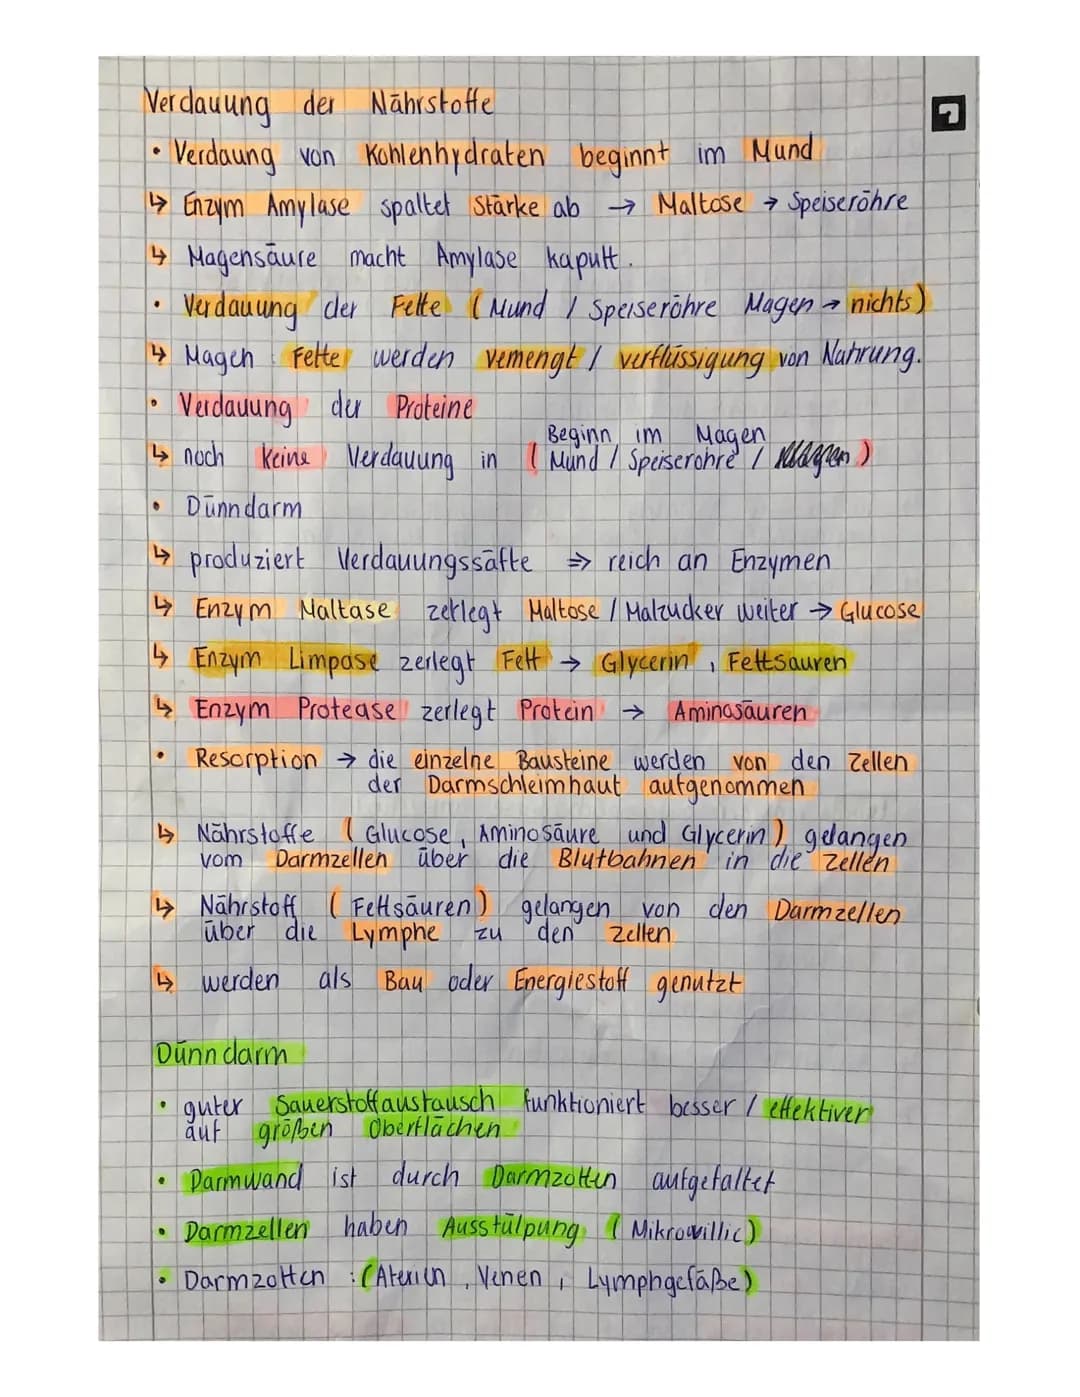 Verdauung der Nährstoffe
• Verdaung von Kohlenhydraten beginnt im Mund
↳ Enzym Amylase spaltet Stärke ab → Maltose → Speiseröhre
↳ Magensäure macht Amylase kaputt.
• Verdauung der Fette (Mund / Speiseröhre Magen → nichts)
↳ Magen : Fette werden vemengt / verflüssigung von Nahrung.
• Verdauung der Proteine
Beginn im Magen
↳ noch keine Verdauung in (Mund / Speiseröhre / Magen)
• Dünndarm
↳ produziert Verdauungssäfte ⇒ reich an Enzymen
↳ Enzym Maltase zerlegt Maltose / Malzucker weiter → Glucose
↳ Enzym Limpase zerlegt Fett → Glycerin , Fettsauren
↳ Enzym Protease zerlegt Protein → Aminosäuren
• Resorption → die einzelne Bausteine werden von den Zellen
der Darmschleimhaut aufgenommen
↳ Nährstoffe (Glucose, Aminosäure und Glycerin) gelangen
vom Darmzellen über die Blutbahnen in die Zellen
↳ Nährstoff (Fettsäuren) gelangen von den Darmzellen
über die Lymphe zu den zellen
↳ werden als Bau oder Energiestoff genutzt
Dünndarm
• guter Sauerstoffaustausch funktioniert besser / effektiver
auf größen Oberflächen
• Darmwand ist durch Darmzotten aufgefaltet
• Darmzellen haben Ausstülpung (Mikrovillic)
• Darmzotten : (Aterien, Venen, Lymphgefäße)